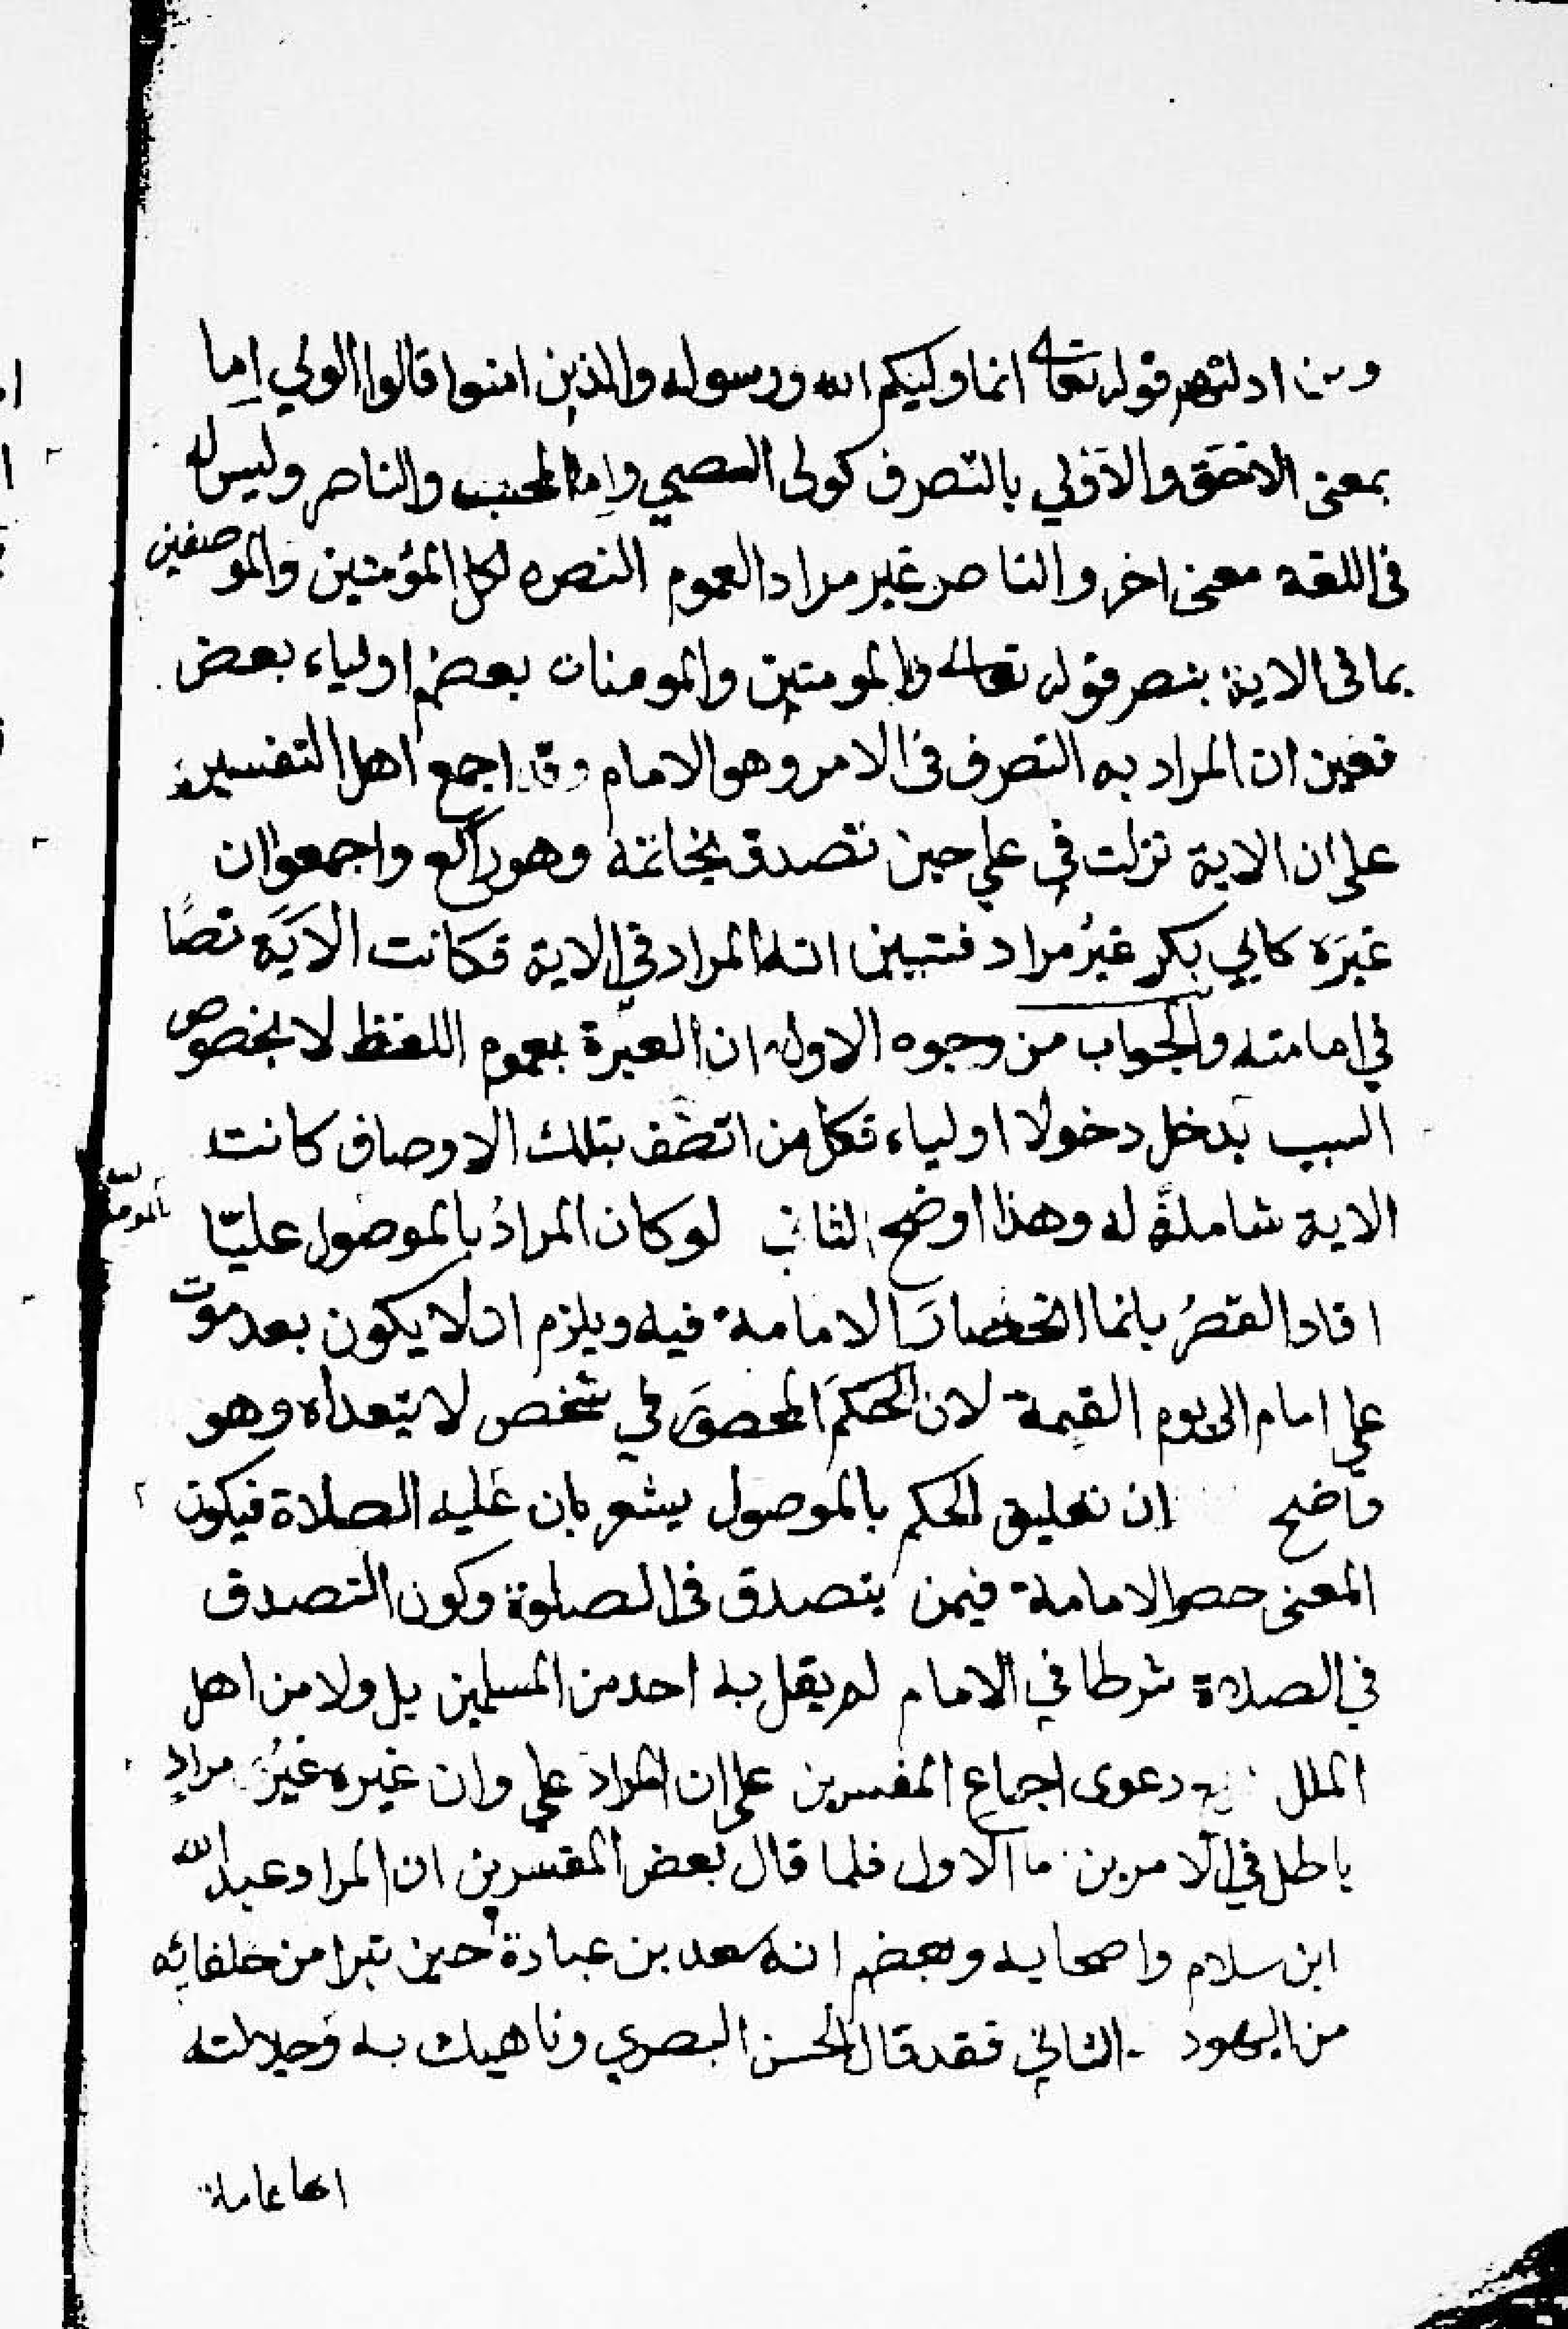 ومن ادلتهم قوله تعالى انما وليكم الله ورسوله والذين امنوا قالوا الولي اِما
بمعنى الاحَق والاَوْلي بالتصرف كولى الصبي واِما المحب والناصر وليس له
فى اللغة معنى اخر والناصر غير مراد لعموم النصره لكل المؤمنين والموصفين
بما فى الاية بنص قوله تعالى والمومنين والمومنات بعضهم اولياء بعض
فتعين ان المراد به التصرف فى الامر وهو الامام وقد اجمع اهل التفسير
على ان الاية نزلت في علي حين تصدق بخاتمه وهو راكع واجمعوا ان
غيرَه كابي بكر غيرُ مراد فتبين انه المراد في الاية فكانت الاَيَة نصًا
في امامته والجواب من وجوه الاول ان العبرة بعموم اللفظ لا بخصوص
السبب بدخل دخولا اولياء فكل من اتصف بتلك الاوصاف كانت
الاية شاملةً له وهذا اوضح الثاني لو كان المرادُ بالموصول عليّا
افاد القصرُ بانما انحصارَ الامامة فيه ويلزم ان لا يكون بعد موت
علي امام الى يوم القيمة لان الحكمَ المحصوَر في شخص لا يتعداه وهو
واضح ان تعليق الحكم بالموصول يشعر بان عَليه الصلاة فيكون
المعنى حصر الامامة فيمن يتصدق فى الصلوة وكون التصدق
في الصلاة شرطا في الامام لم يقل به احد من المسلمين بل ولا من اهل
الملل دعوى اجماع المفسرين على ان المراد علي وان غيره غيرُ مرادٍ
باطل في الامرين ما الاول فلما قال بعض المفسرين ان المراد عبد الله
ابن سلام واصحابه وبعضهم انه سعد بن عبادة حين تبرا من حلفائه
من اليهود الثاني فقد قال الحسن البصري وناهيك به وَجلالته
انها عامة